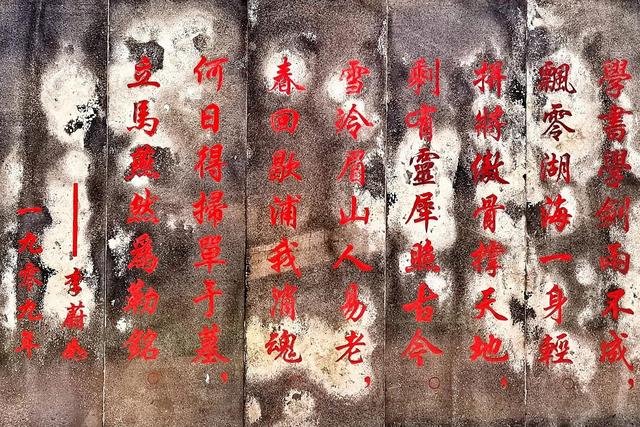 學書學劍兩不成，
飄零湖海一身輕。
拼將傲骨撐天地，
剩有靈犀照古今。
雪冷眉山人易老，
春回歇浦我消魂。
何日得掃單于墓，
立馬燕然爲勒銘。
——李蔚如
一九零九年